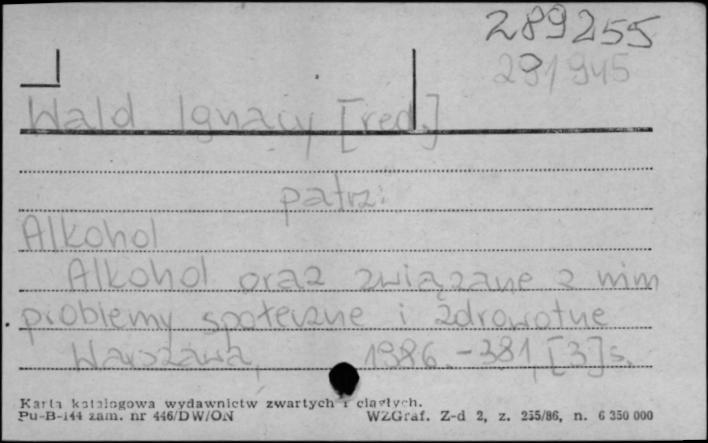 289255
291945
Wald Ignacy [red.]
patrz:
Alkohol
Alkohol oraz związane z nim
problemy społeczne i zdrowotne
Warszawa, 1986. - 381, [3] s.
Karta katalogowa wydawnictw zwartych i ciągłych.
Pu-B-144 zam. nr 446/DW/ON WZGraf. Z-d 2, z. 255/86, n. 6 350 000